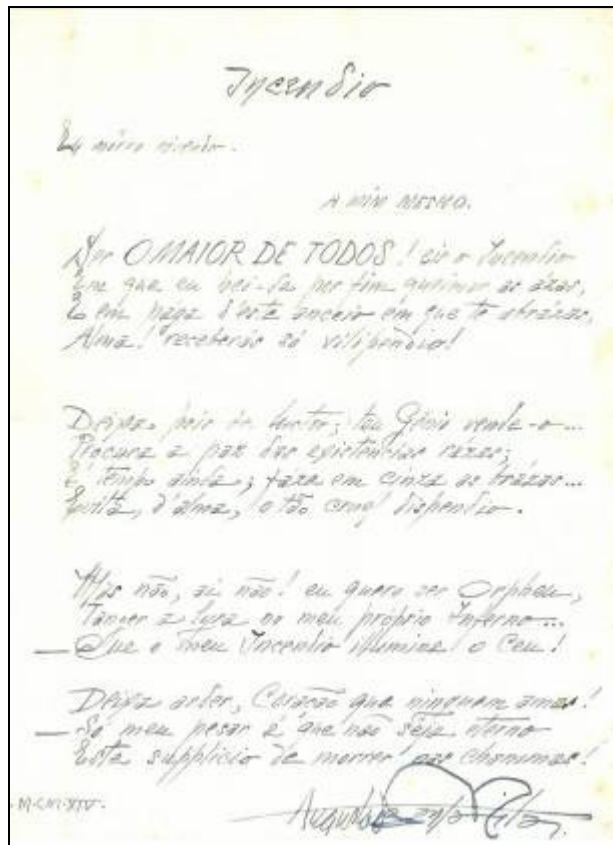 Incendio
Eu môrro
A MIM MESMO.
Ser O MAIOR DE TODOS! eis o Incendio
Em que eu hei-de por fim queimar as ázas,
E em paga d'este anceio em que te abrazas,
Alma! receberás só vilipendio!
Deixa, pois de luctar; teu Génio vende-o...
Procura a paz das existencias rázas;
É tempo ainda; faze em cinza as brázas...
Evita, d'alma, o tão cruel dispendio.
Mas não, ai não! eu quero ser Orpheu,
Tanger a lyra no meu próprio Inferno...
— Que o meu Incendio illumine o Ceu!
Deixa arder, Coração que ninguem amas!
— Só meu pesar é que não seja eterno
Este supplicio de morrer nas chammas!
M.CM.XIV.
Augusto